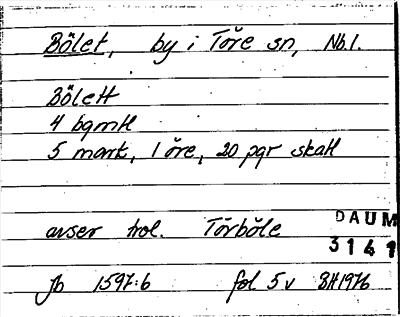 Bölet, by i Töre sn, Nb.l.
Bölett
4 bgmtl
5 mark, 1 öre, 20 pgr skatt
avser trol. Törböle
DAUM
3141
Jb 1597:6 fol 5v BH1976